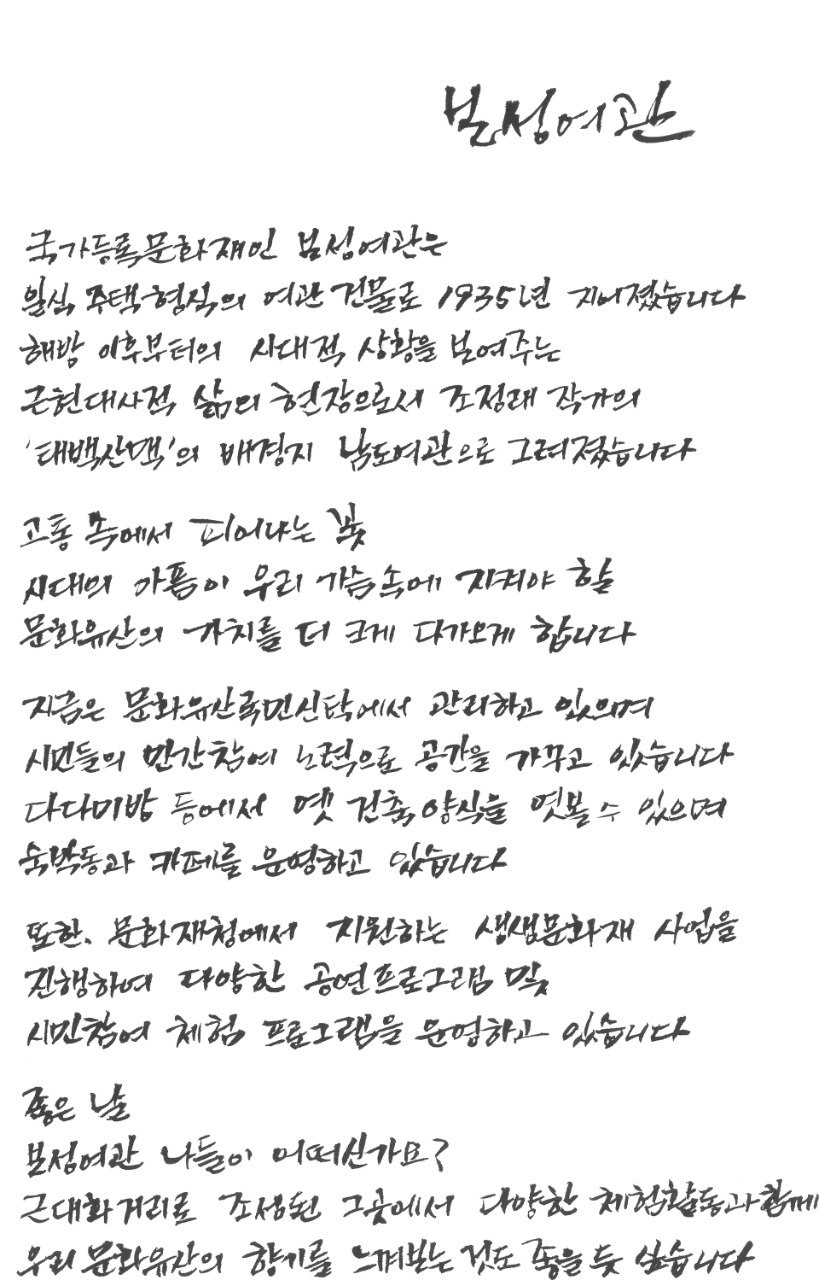 보성여관
국가등록문화재인 보성여관은
일식 주택형식의 여관 건물로 1935년 지어졌습니다
해방 이후부터의 시대적 상황을 보여주는
근현대사적 삶의 현장으로서 조정래 작가의
'태백산맥'의 배경지 남도여관으로 그려졌습니다
고통 속에서 피어나는 빛
시대의 아픔이 우리 가슴속에 지켜야 할
문화유산의 가치를 더 크게 다가오게 합니다
지금은 문화유산국민신탁에서 관리하고 있으며
시민들의 민간참여 노력으로 공간을 가꾸고 있습니다
다다미방 등에서 옛 건축양식을 엿볼 수 있으며
숙박동과 카페를 운영하고 있습니다
또한, 문화재청에서 지원하는 생생문화재 사업을
진행하여 다양한 공연프로그램 및
시민참여 체험 프로그램을 운영하고 있습니다
좋은 날
보성여관 나들이 어떠신가요?
근대화거리로 조성된 그곳에서 다양한 체험활동과 함께
우리 문화유산의 향기를 느껴보는 것도 좋을 듯 싶습니다